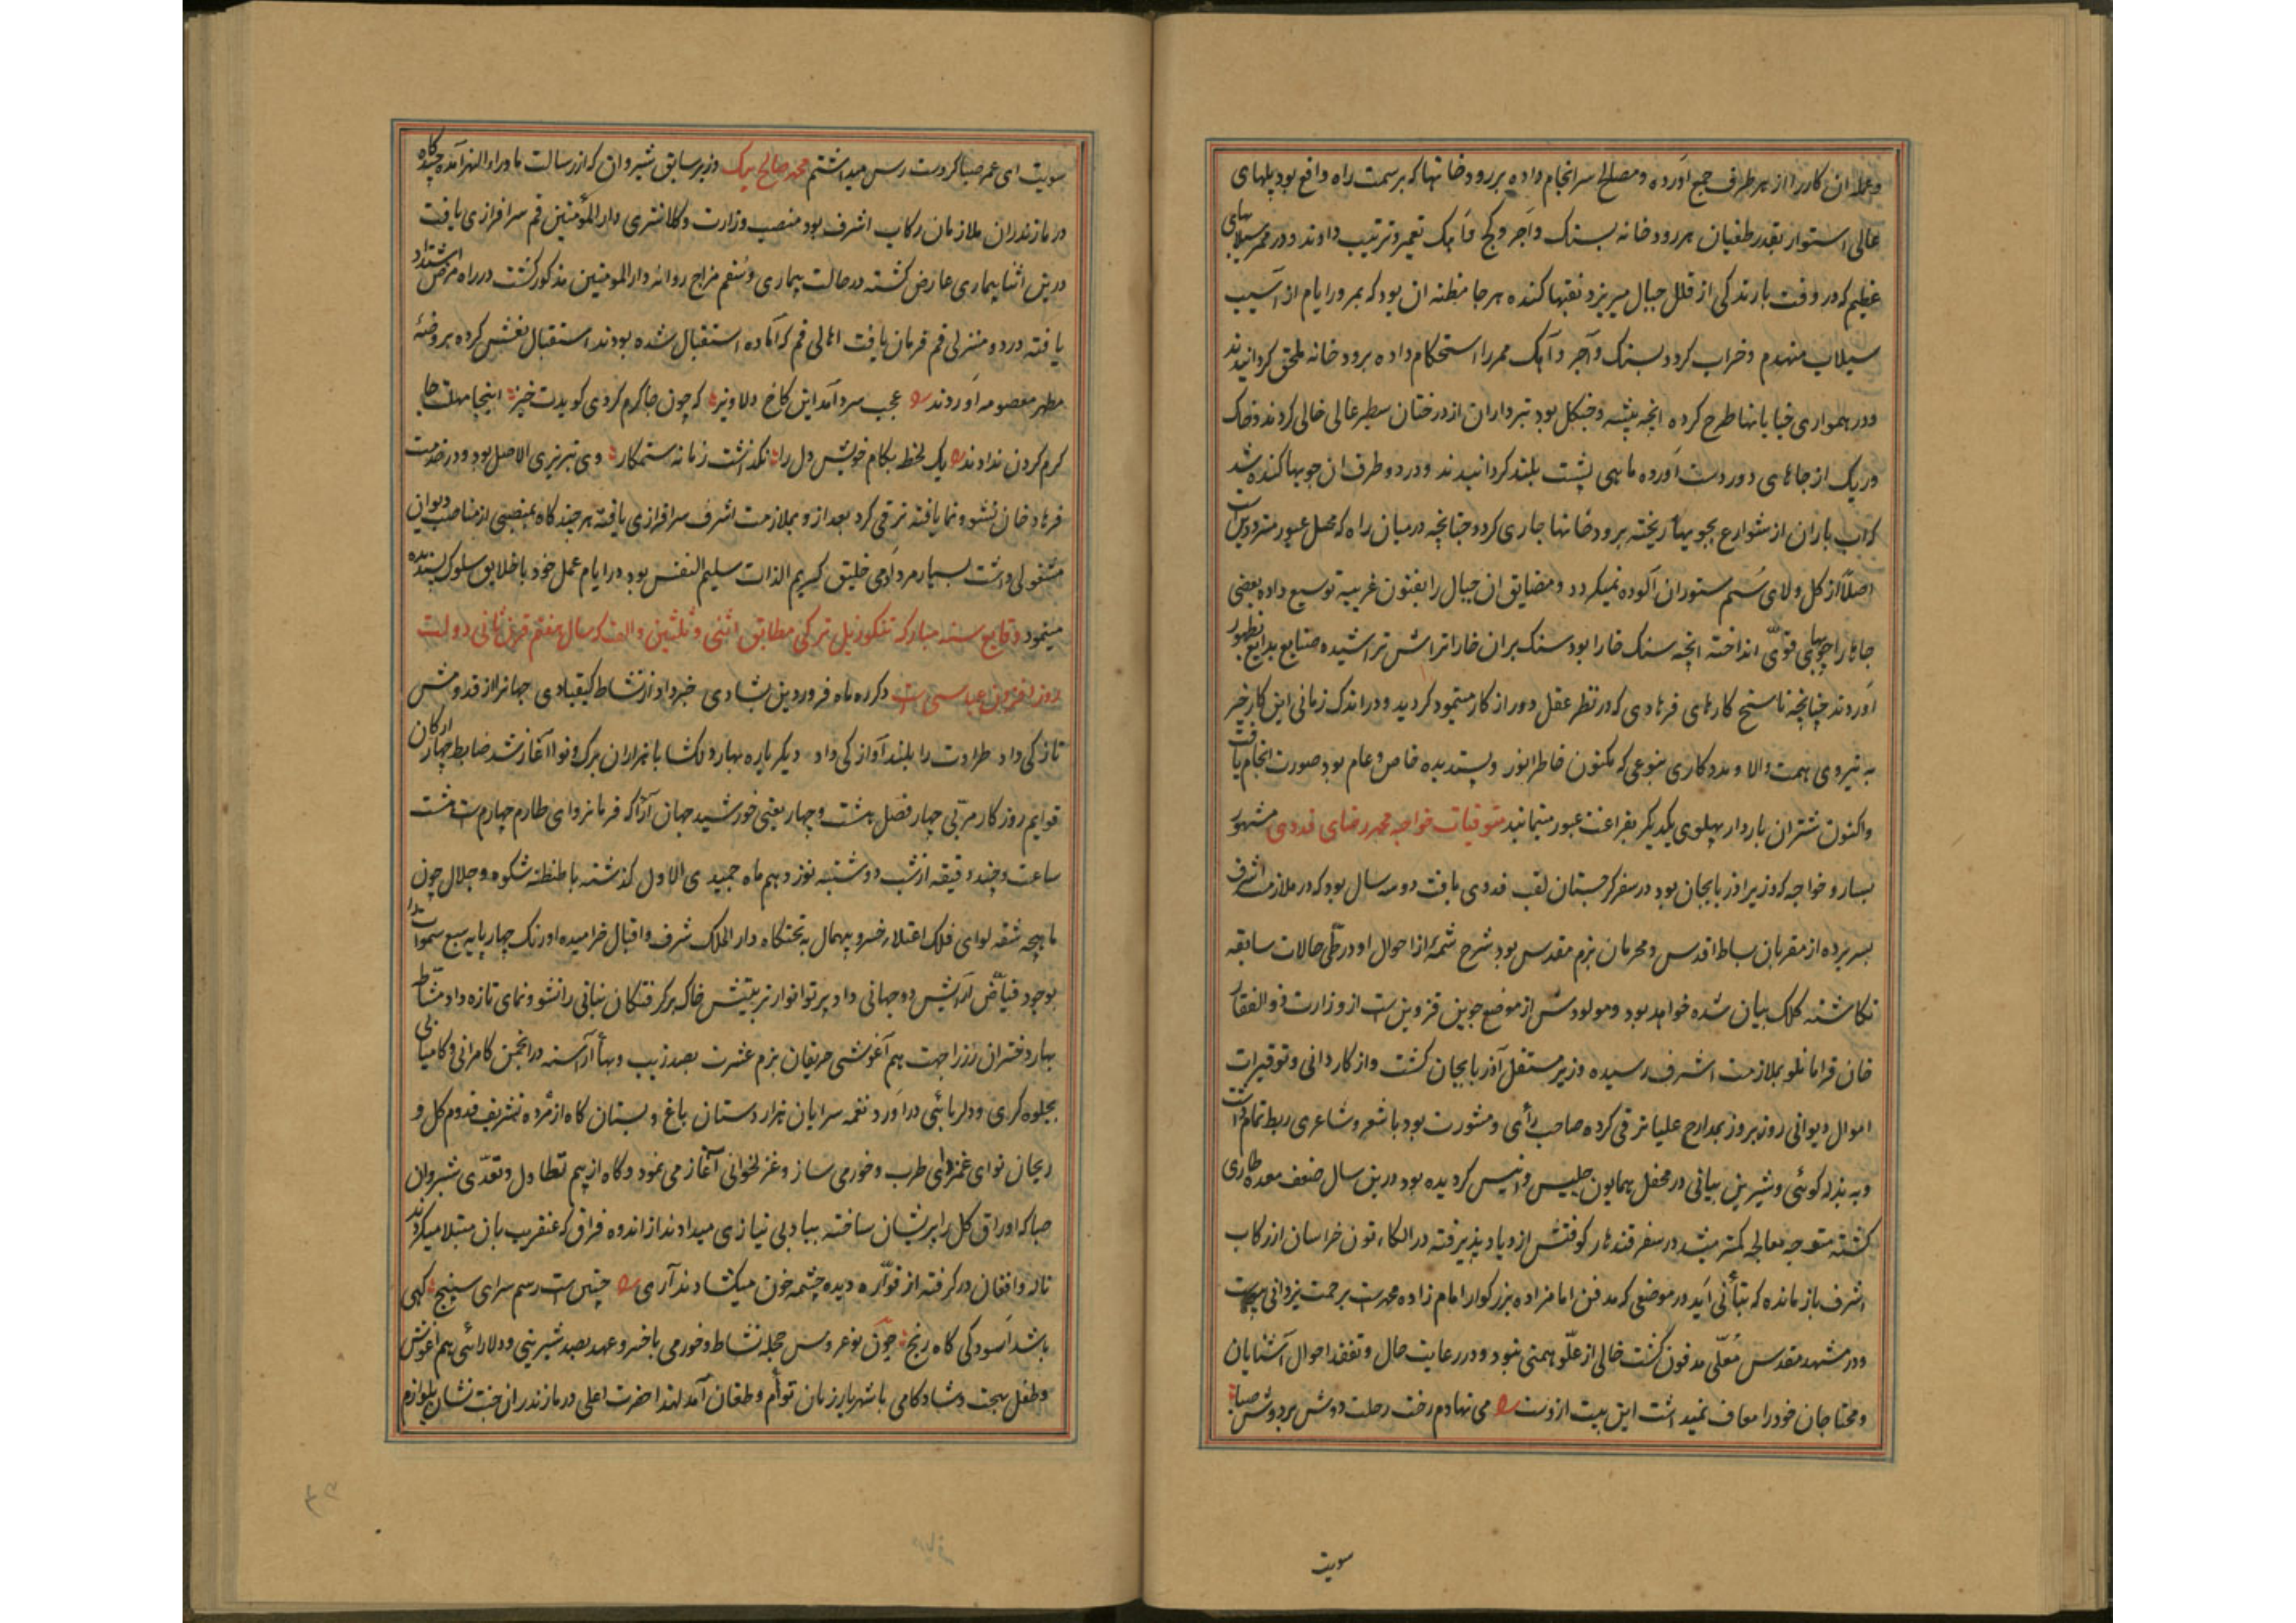 وعمله ان کار را از هر طرف جمع آورده و مصالح سرانجام داده بر رودخانها که بر سمت راه واقع بود پلهای
عالی استوار بقدر طغیان هر رودخانه بسنک و آجر و کج و آهک تعمیر و ترتیب دادند و در ممر سیلابهای
عظیم که در وقت بارندکی از قلل جبال میریزد نقبها کنده هر جا مظنه ان بود که بمرور ایام از آسیب
سیلاب منهدم و خراب کردد بسنک و آجر و آهک ممر را استحکام داده برودخانه ملحق کردانیدند
و در همواری خیابانها طرح کرده انچه بیشه و جنکل بود تبرداران از درختان سطبر عالی خالی کردند و خاک
و ریک از جاهای دور دست آورده ماهی پشت بلند کردانیدند و در دو طرف ان جویها کنده شد
که آب باران از شوارع بجویها ریخته برودخانها جاری کردد چنانچه در میان راه که محل عبور مترددین است
اصلاً از کل و لای سم ستوران آلوده نمیکردد و مضایق ان جبال را بفنون غریبه توسیع داده بعضی
جاها را چوبهای قوی انداخته انچه سنک خارا بود سنک بران خارا تراش تراشیده صنایع بدایع بظهور
آوردند چنانچه ناسخ کارهای فرهادی که در نظر عقل دور از کار مینمود کردید و در اندک زمانی این کار خیر
به نیروی همت والا و مددکاری بنوعی که مکنون خاطر انور و پسندیده خاص و عام بود صورت انجام یافت
واکنون شتران باردار پهلوی یکدیکر بفراغت عبور مینمایند متوفیات خواجه محمد رضای فدوی مشهور
بسارو خواجه که وزیر اذربایجان بود در سفر کرجستان لقب فدوی یافت دو سه سال بود که در ملازمت اشرف
بسر برده از مقربان بساط اقدس و محرمان بزم مقدس بود شرح شمهٔ از احوال او در طی حالات سابقه
نکاشته کلک بیان شده خواهد بود و مولودش از موضع جوین قزوین است از وزارت ذوالفقار
خان قرامانلو بملازمت اشرف رسیده وزیر مستقل آذربایجان کشت و از کاردانی و توقیرات
اموال دیوانی روز بروز بمدارج علیا ترقی کرده صاحب رأی و مشورت بود با شعر و شاعری ربط تمام داشت
و به بذله کوئی و شیرین بیانی در محفل همایون جلیس و انیس کردیده بود درین سال ضعف معده طاری
کشته متوجه معالجه کمتر میشد در سفر قندهار کوفتش ازدیاد پذیرفته در الکاء تون خراسان از رکاب
اشرف باز مانده که بتأنی آید در موضعی که مدفن امامزاده بزرکوار امام زاده محمد است برحمت یزدانی پیوست
و در مشهد مقدس معلی مدفون کشت خالی از علو همتی نبود و در رعایت حال و تفقد احوال آشنایان
و محتاجان خود را معاف نمیداشت این بیت ازوست می نهادم رخت رحلت دوش بر دوش صبا
سویت
سویت ای عمر صبا کر دست رس میداشتم محمد صالح بیک وزیر سابق شیروان که از رسالت ماوراءالنهر آمده چند کاه
در مازندران ملازمان رکاب اشرف بود منصب وزارت و کلانتری دارالمؤمنین قم سرافرازی یافت
درین اثنا بیماری عارض کشته در حالت بیماری و سقم مزاج روانه دارالمومنین مذکور کشت در راه مرض اشتداد
یافته در دو منزلی قم فرمان یافت اهالی قم که آماده استقبال شده بودند استقبال نعشش کرده بروضهٔ
مطهر معصومه آوردند عجب سرد آمد این کاخ دلاویز که چون جا کرم کردی کویدت خیز اینجا مهلت جا
کرم کردن ندادند یک لحظه بکام خویش دل را نکذاشت زمانه ستمکار وی تبریزی الاصل بود و در خدمت
فرهاد خان نشو و نما یافته ترقی کرد بعد ازو بملازمت اشرف سرافرازی یافته هر چند کاه بمنصبی از مناصب دیوان
مشغولی داشت بسیار مرد آدمی خلیق کریم الذات سلیم النفس بود در ایام عمل خود با خلایق سلوک پسندیده
مینمود وقایع سنه مبارکه تنکوزئیل ترکی مطابق اثنی و ثلثین و الف که سال هفتم قرن ثانی دولت
روز افزون عباسی است دکر ره ماه فروردین بشادی خبر داد از نشاط کیقبادی جهانرا از قدومش
تازکی داد طراوت را بلند آوازکی داد دیکر باره بهار دلکشا با هزاران برک و نوا آغاز شد ضابط چهار ارکان
قوایم روزکار مربی چهار فصل هشت و چهار یعنی خورشید جهان آرا که فرمانروای طارم چهارم است هشت
ساعت و چند دقیقه از شب دوشنبه نوزدهم ماه جمیدی الاول کذشته با طنطنه شکوه و جلال چون
ماهچه شقه لوای فلک اعتلاء خسرو بیهمال به تختکاه دارالملک شرف و اقبال خرامیده اورنک چهار پایه سبع سموات را
بوجود فیاض آرایش دو جهانی داد پرتو انوار تربیتش خاک برکرفتکان نباتی را نشو و نمای تازه داد مشاطه
بهار دختران رز را جهت هم آغوشی حریفان بزم عشرت بصد زیب و بها آراسته در انجمن کامرانی و کامیابی
بجلوه کری و دلربائی در آورد نغمه سرایان هزار دستان باغ و بستان کاه از مژده تشریف قدوم کل و
ریحان نوای غمزدای طرب و خورمی ساز و غزلخوانی آغاز می نمود و کاه از بیم تطاول و تعدی شبروان
صبا که اوراق کل را پریشان ساخته بباد بی نیازی میدادند از اندوه فراق که عنقریب بان مبتلا میکردند
ناله و افغان در کرفته از فواره دیده چشمه خون میکشادند آری چنین است رسم سرای سپنج کهی
باشد آسودکی کاه رنج چون نوعروس حجله نشاط و خورمی با خسرو عهد بصد شیرینی و دلارائی هم آغوش
و طفل بهجت و شادکامی با شهریار زمان توأم و طغان آمد لهذا حضرت اعلی در مازندران جنت نشان بلوازم